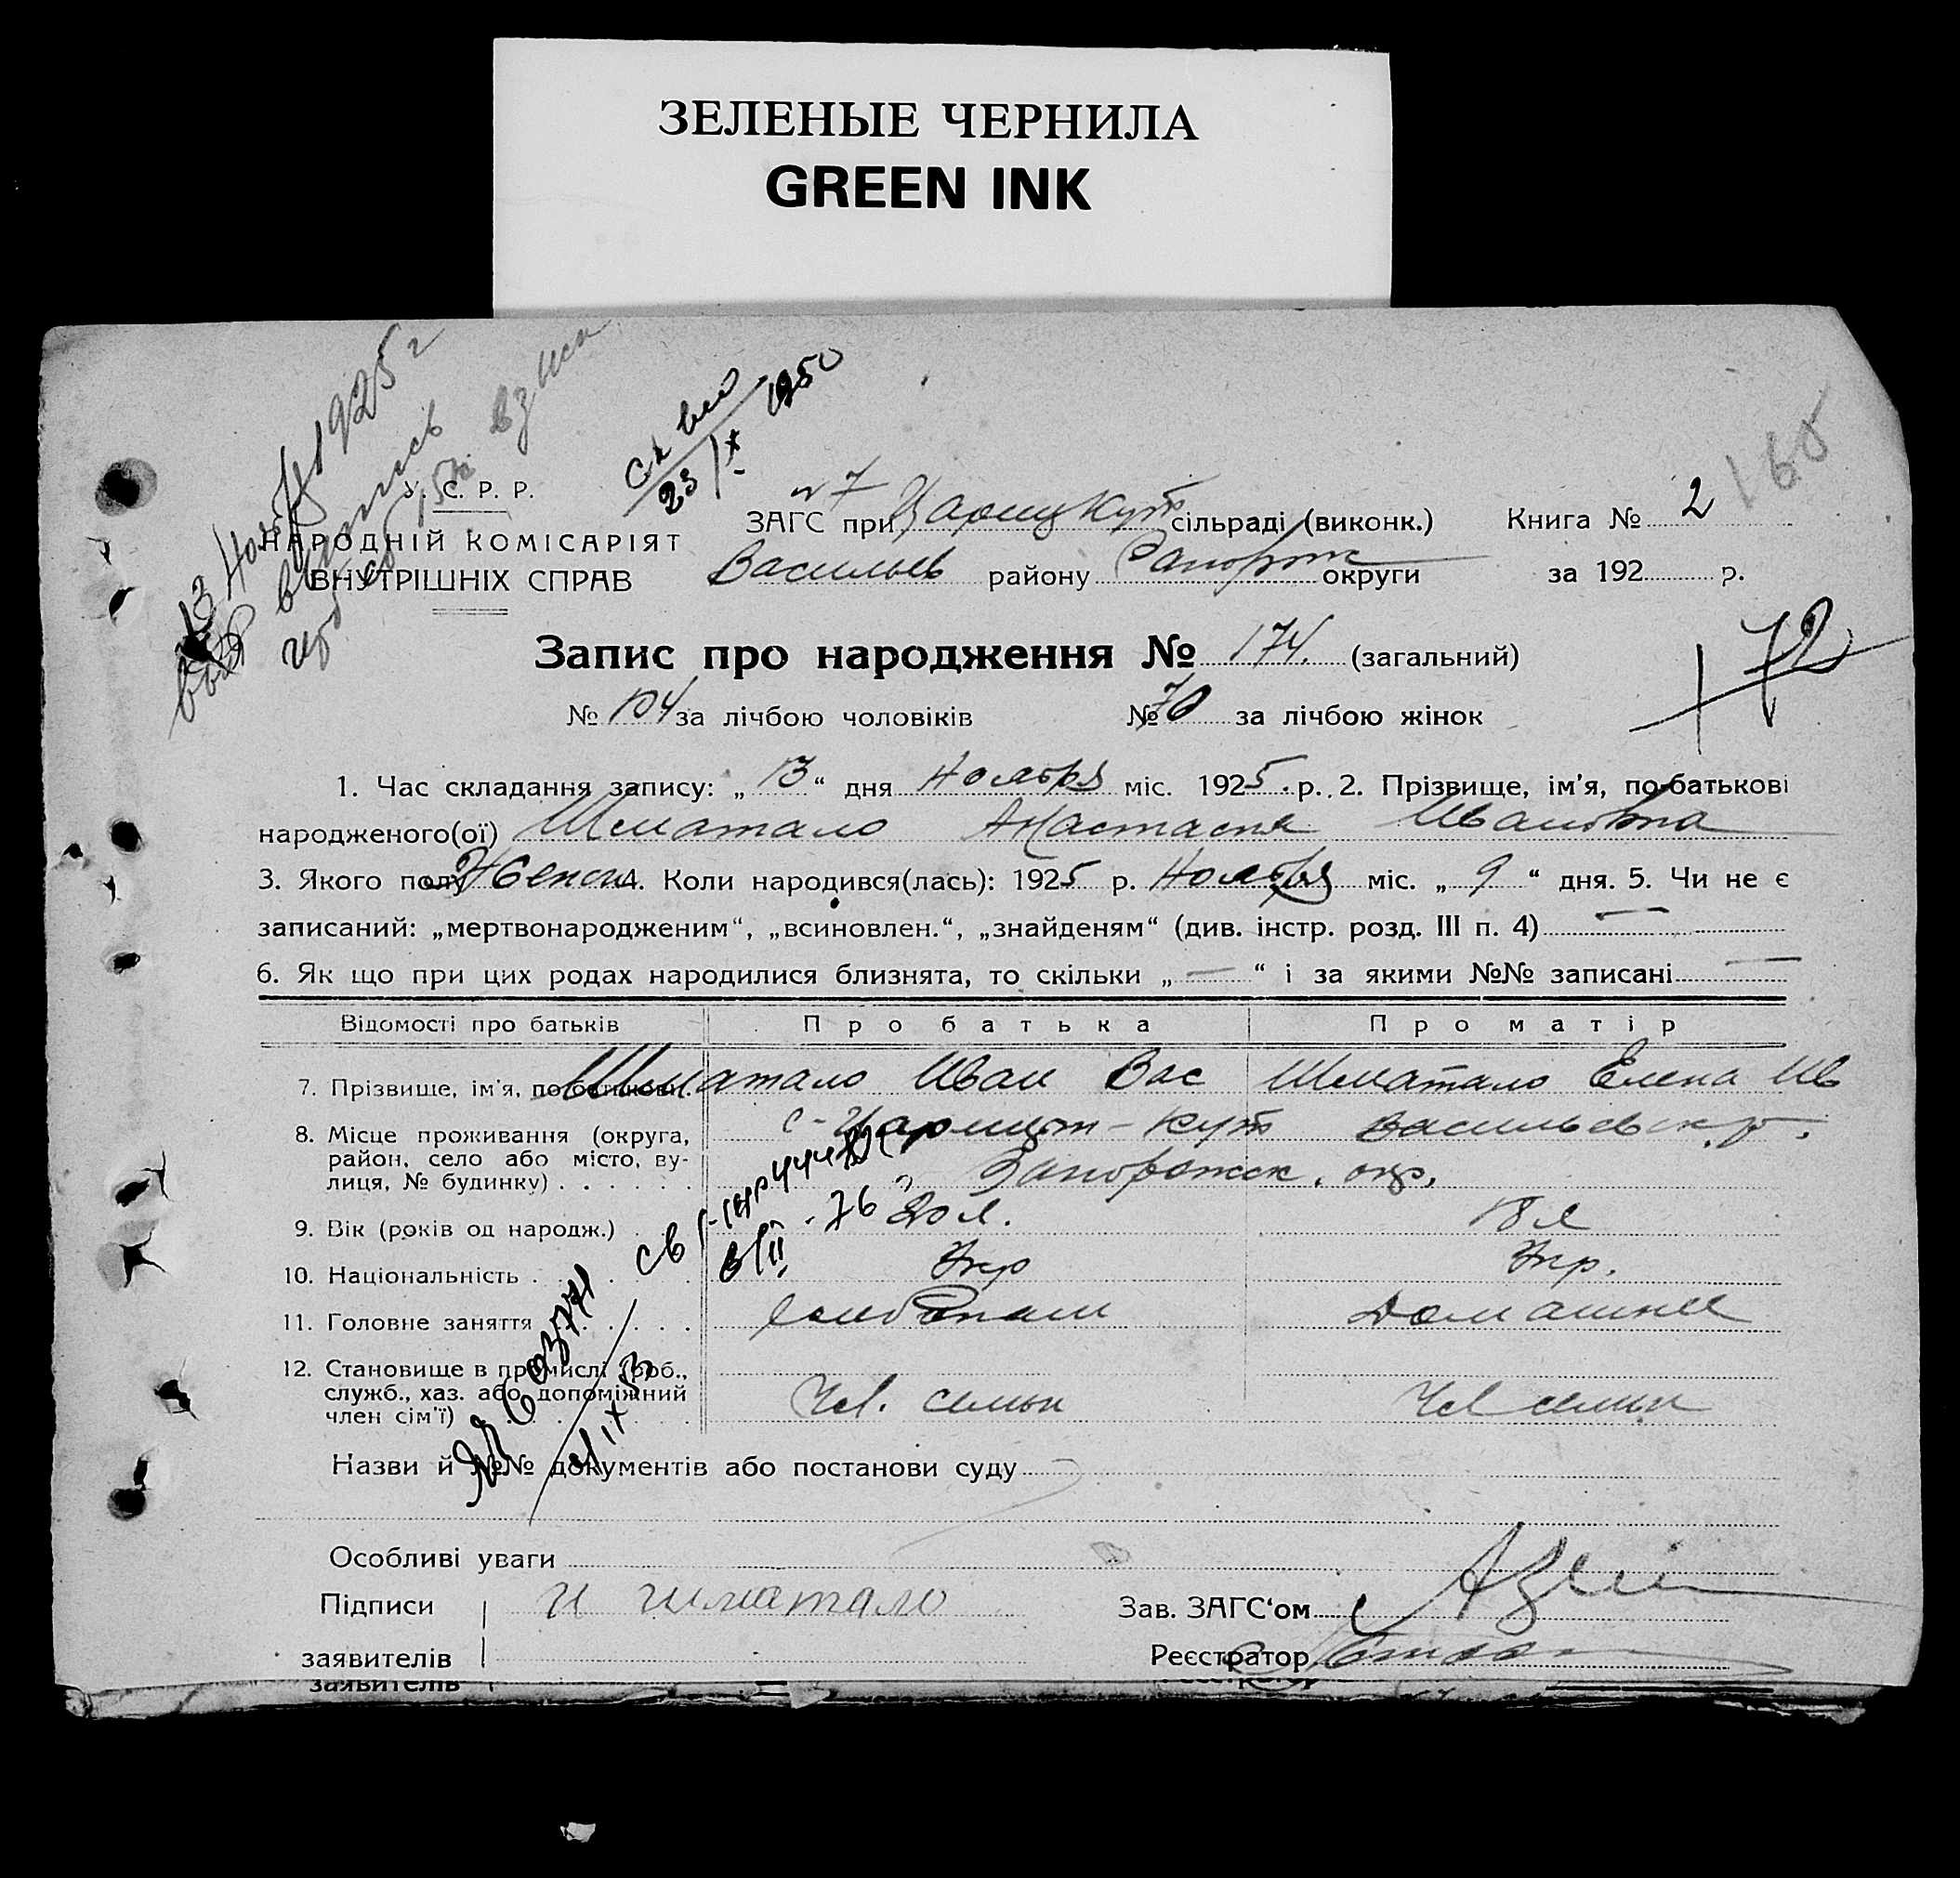 ЗЕЛЕНЫЕ ЧЕРНИЛА
GREEN INK
13 1925 г
23/X 1950
165
У. С. Р. Р.
НАРОДНІЙ КОМІСАРІЯТ
ВНУТРІШНІХ СПРАВ
ЗАГС при Царицкут сільраді (виконк.) Книга № 2
Васильев району Запорож округи за 192 р.
Запис про народження № 174. (загальний)
172
№ 104 за лічбою чоловіків № 70 за лічбою жінок
1. Час складання запису: „ 13 “ дня Ноября міс. 1925 . р. 2. Прізвище, ім'я, по-батькові
народженого(ої) Шматало Анастасия Ивановна
3. Якого полу Женск 4. Коли народився(лась): 1925 р. Ноября міс. „ 9 “ дня. 5. Чи не є
записаний: „мертвонародженим“, „всиновлен.“, „знайденям“ (див. інстр. розд. III п. 4) —
6. Як що при цих родах народилися близнята, то скільки „ — “ і за якими №№ записані —
Відомості про батьків Про батька Про матір
7. Прізвище, ім'я, по-батькові. Шматало Иван Вас Шматало Елена Ив
8. Місце проживання (округа, район, село або місто, вулиця, № будинку) . . . . . . с-Царицын-Кут Васильевск. р.
Запорожск. окр.
9. Вік (років од народж.) . 20 л. 18 л
10. Національність . . . . . Укр Укр.
11. Головне заняття . . . . . Домашнее
12. Становище в промислі (роб., служб., хаз. або допоміжний член сім'ї) Чл. семьи Чл семьи
Назви й №№ документів або постанови суду
Особливі уваги
Підписи И Шматало Зав. ЗАГС‘ом
заявителів Реєстратор
заявителів